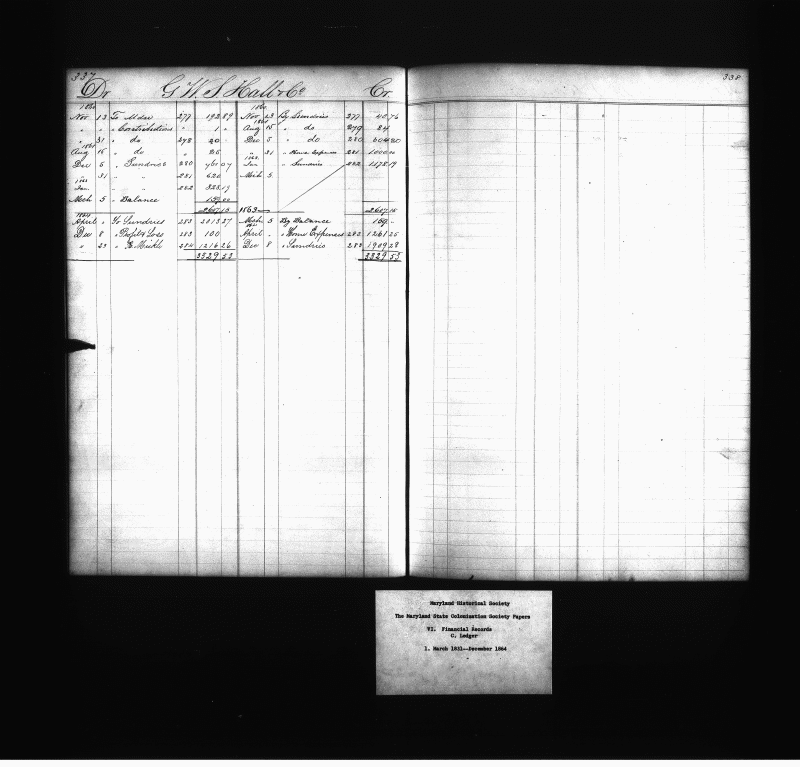 337
338
Dr G. W. S. Hall & Co Cr.
1860 1860
Nov 13 To Mdse 277 192 89 Nov 23 By Sundries 277 40 76
" " " Contributions " 1 " Aug 15 " do 279 24
" 31 " do 278 20 Dec 5 " do 280 604 20
Aug 15 " do " 25 " 31 " Home Expenses 281 1000 00
Dec 5 " Sundries 280 761 07 Jan " Sundries 282 1178 19
" 31 " " 281 620 Mch 5
Jan " " 262 328 19
Mch 5 " Balance 159 00
2607 15 1863 2607 15
1864
April " To Sundries 283 2013 27 Mch 5 By Balance 159
Dec 8 " Profit & Loss 283 100 April " " Home Expenses 283 1261 25
" 23 " 284 1216 26 Dec 8 " Sundries 283 1909 28
3329 53 3329 53
Maryland Historical Society
The Maryland State Colonization Society Papers
VI. Financial Records
C. Ledger
1. March 1831--December 1864